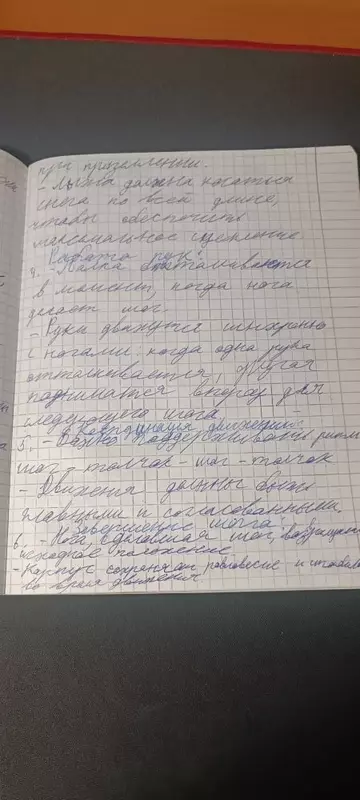 при приземлении.
- Лыжа должна касаться
снега по всей длине,
чтобы обеспечить
максимальное сцепление.
Работа рук:
4. - Палка отталкивается
в момент, когда нога
делает шаг.
- Руки движутся синхронно
с ногами, когда одна рука
отталкивается, другая
поднимается вперед для
следующего шага
Координация движений:
5. - Важно поддерживать ритм
шаг - толчок - шаг - толчок
- Движения должны быть
плавными и согласованными.
Завершение шага:
6. - Нога, сделавшая шаг, возвращается
исходное положение
- Корпус сохраняет равновесие и
во время движения